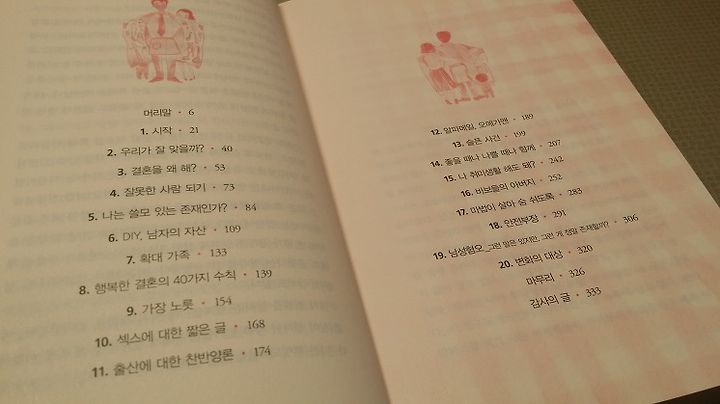 머리말 • 6
1. 시작 • 21
2. 우리가 잘 맞을까? • 40
3. 결혼을 왜 해? • 53
4. 잘못한 사람 되기 • 73
5. 나는 쓸모 있는 존재인가? • 84
6. DIY, 남자의 자산 • 109
7. 확대 가족 • 133
8. 행복한 결혼의 40가지 수칙 • 139
9. 가장 노릇 • 154
10. 섹스에 대한 짧은 글 • 168
11. 출산에 대한 찬반양론 • 174
12. 알파메일, 오메가맨 • 189
13. 슬픈 사건 • 199
14. 좋을 때나 나쁠 때나 함께 • 207
15. 나 취미생활 해도 돼? • 242
16. 바보들의 아버지 • 252
17. 마법이 살아 숨 쉬도록 • 283
18. 안전부장 • 291
19. 남성혐오_그런 말은 있지만, 그런 게 정말 존재할까? • 306
20. 변화의 대상 • 320
마무리 • 326
감사의 글 • 333